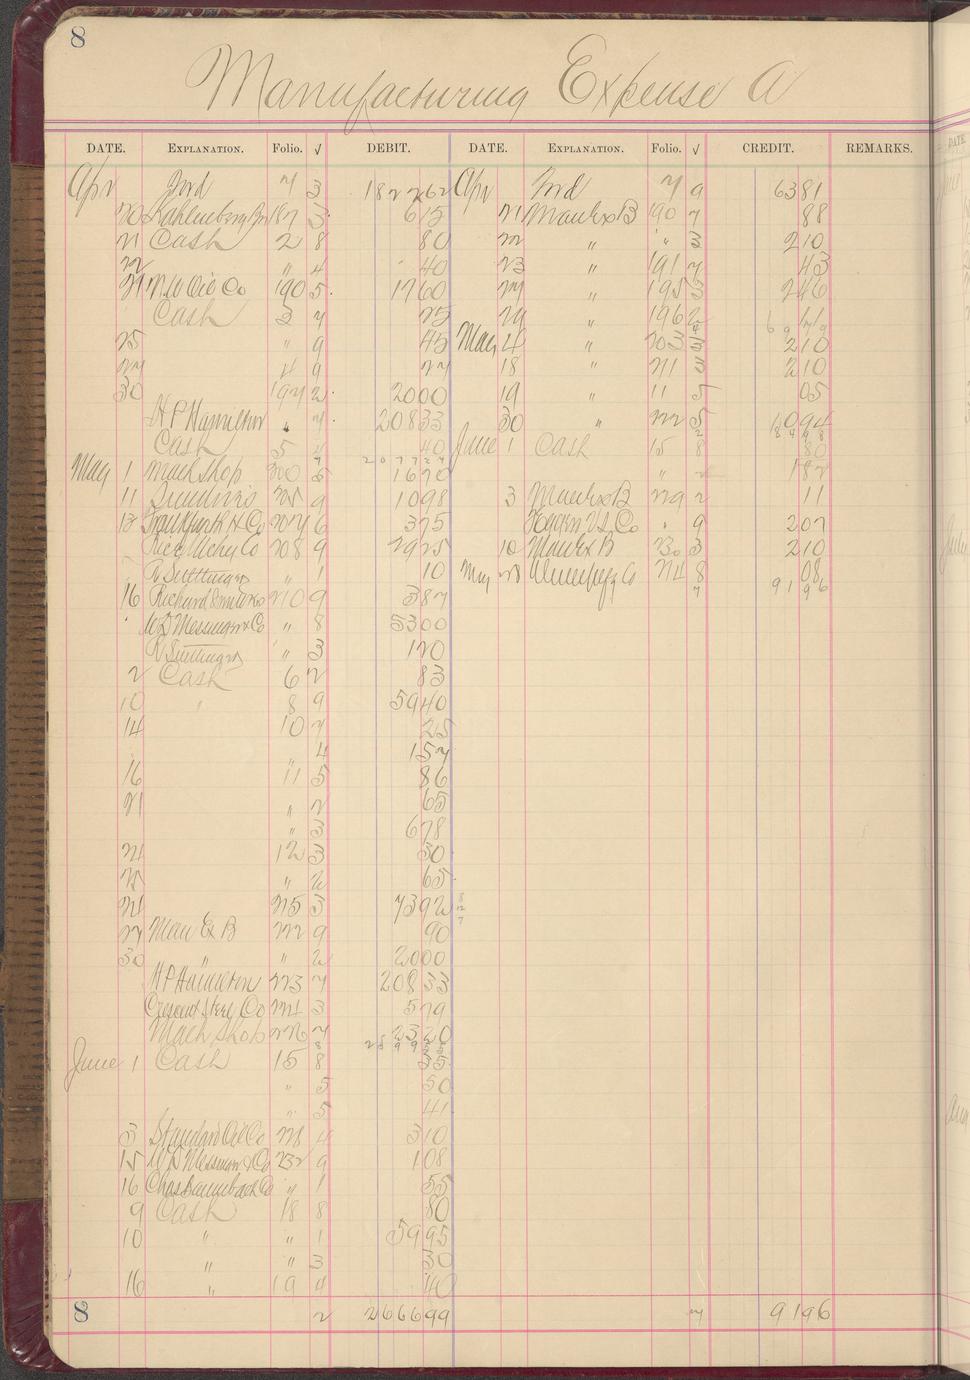 8
Manufacturing Expense A
DATE. EXPLANATION. Folio. √ DEBIT. DATE. EXPLANATION. Folio. √ CREDIT. REMARKS.
Apr Ford 7 3 182262 Apr Ford 7 9 6381
20 Kahlenberg Bros 187 3 615 21 Man Ex B 190 7 88
21 Cash 2 8 80 22 " " 3 210
22 " 4 40 23 " 191 7 43
21 N.W. Oil Co 190 5 1760 24 " 195 3 246
Cash 3 7 25 29 " 196 2
25 " 9 45 May 4 " 203 3 210
27 4 9 27 18 " 211 3 210
30 197 2 2000 19 " 11 5 05
H P Hamilton " 7 20833 30 " 222 5 1094
Cash 5 4 40 June 1 Cash 15 8 80
207727
May 1 Mach shop 200 5 1670 " 2 182
11 9 1098 3 Man Ex B 229 2 11
13 6 375 Co " 9 207
Rice Co 208 9 2925 10 Man Ex B 230 3 210
" 1 10 May 28 Co 214 8 08
9196
16 Richard 210 9 387
W D Messinger & Co " 8 5300
" 3 120
2 Cash 6 2 83
10 " 8 9 5940
14 10 7 25
4 157
16 " 11 5 86
21 " 2 65
" 3 678
24 12 3 30
25 " 2 65
24 215 3 7392
27 Man Ex B 222 9 90
30 " " 2 2000
H P Hamilton 223 7 20833
Crescent Steel Co 224 3 579
Mach Shop 226 7 2320
June 1 Cash 15 8 35
" 5 50
" 5 41
3 Standard Oil Co 228 4 310
15 W D Messinger & Co 232 9 108
16 Chas Co " 1 55
9 Cash 18 8 80
10 " " 1 5995
" " 3 30
16 " 19 4 40
8 2 266699 7 9196